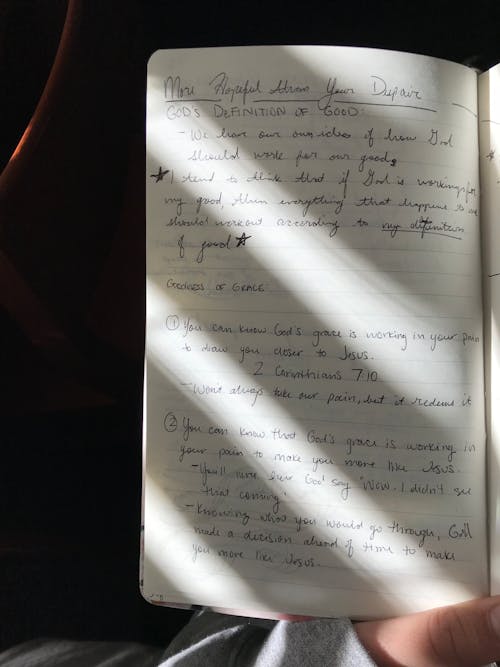 More Hopeful than Your Despair
GOD'S DEFINITION OF GOOD:
- We have our own ideas of how God
should work for our good.
★ I tend to think that if God is working for
my good, then everything that happens to me
should workout according to my definition
of good ★
GOODNESS OF GRACE:
① You can know God's grace is working in your pain
to draw you closer to Jesus.
2 Corinthians 7:10
- Won't always take our pain, but it redeems it
② You can know that God's grace is working in
your pain to make you more like Jesus.
- You'll never hear God say "Wow. I didn't see
that coming"
- Knowing what you would go through, God
made a decision ahead of time to make
you more like Jesus.